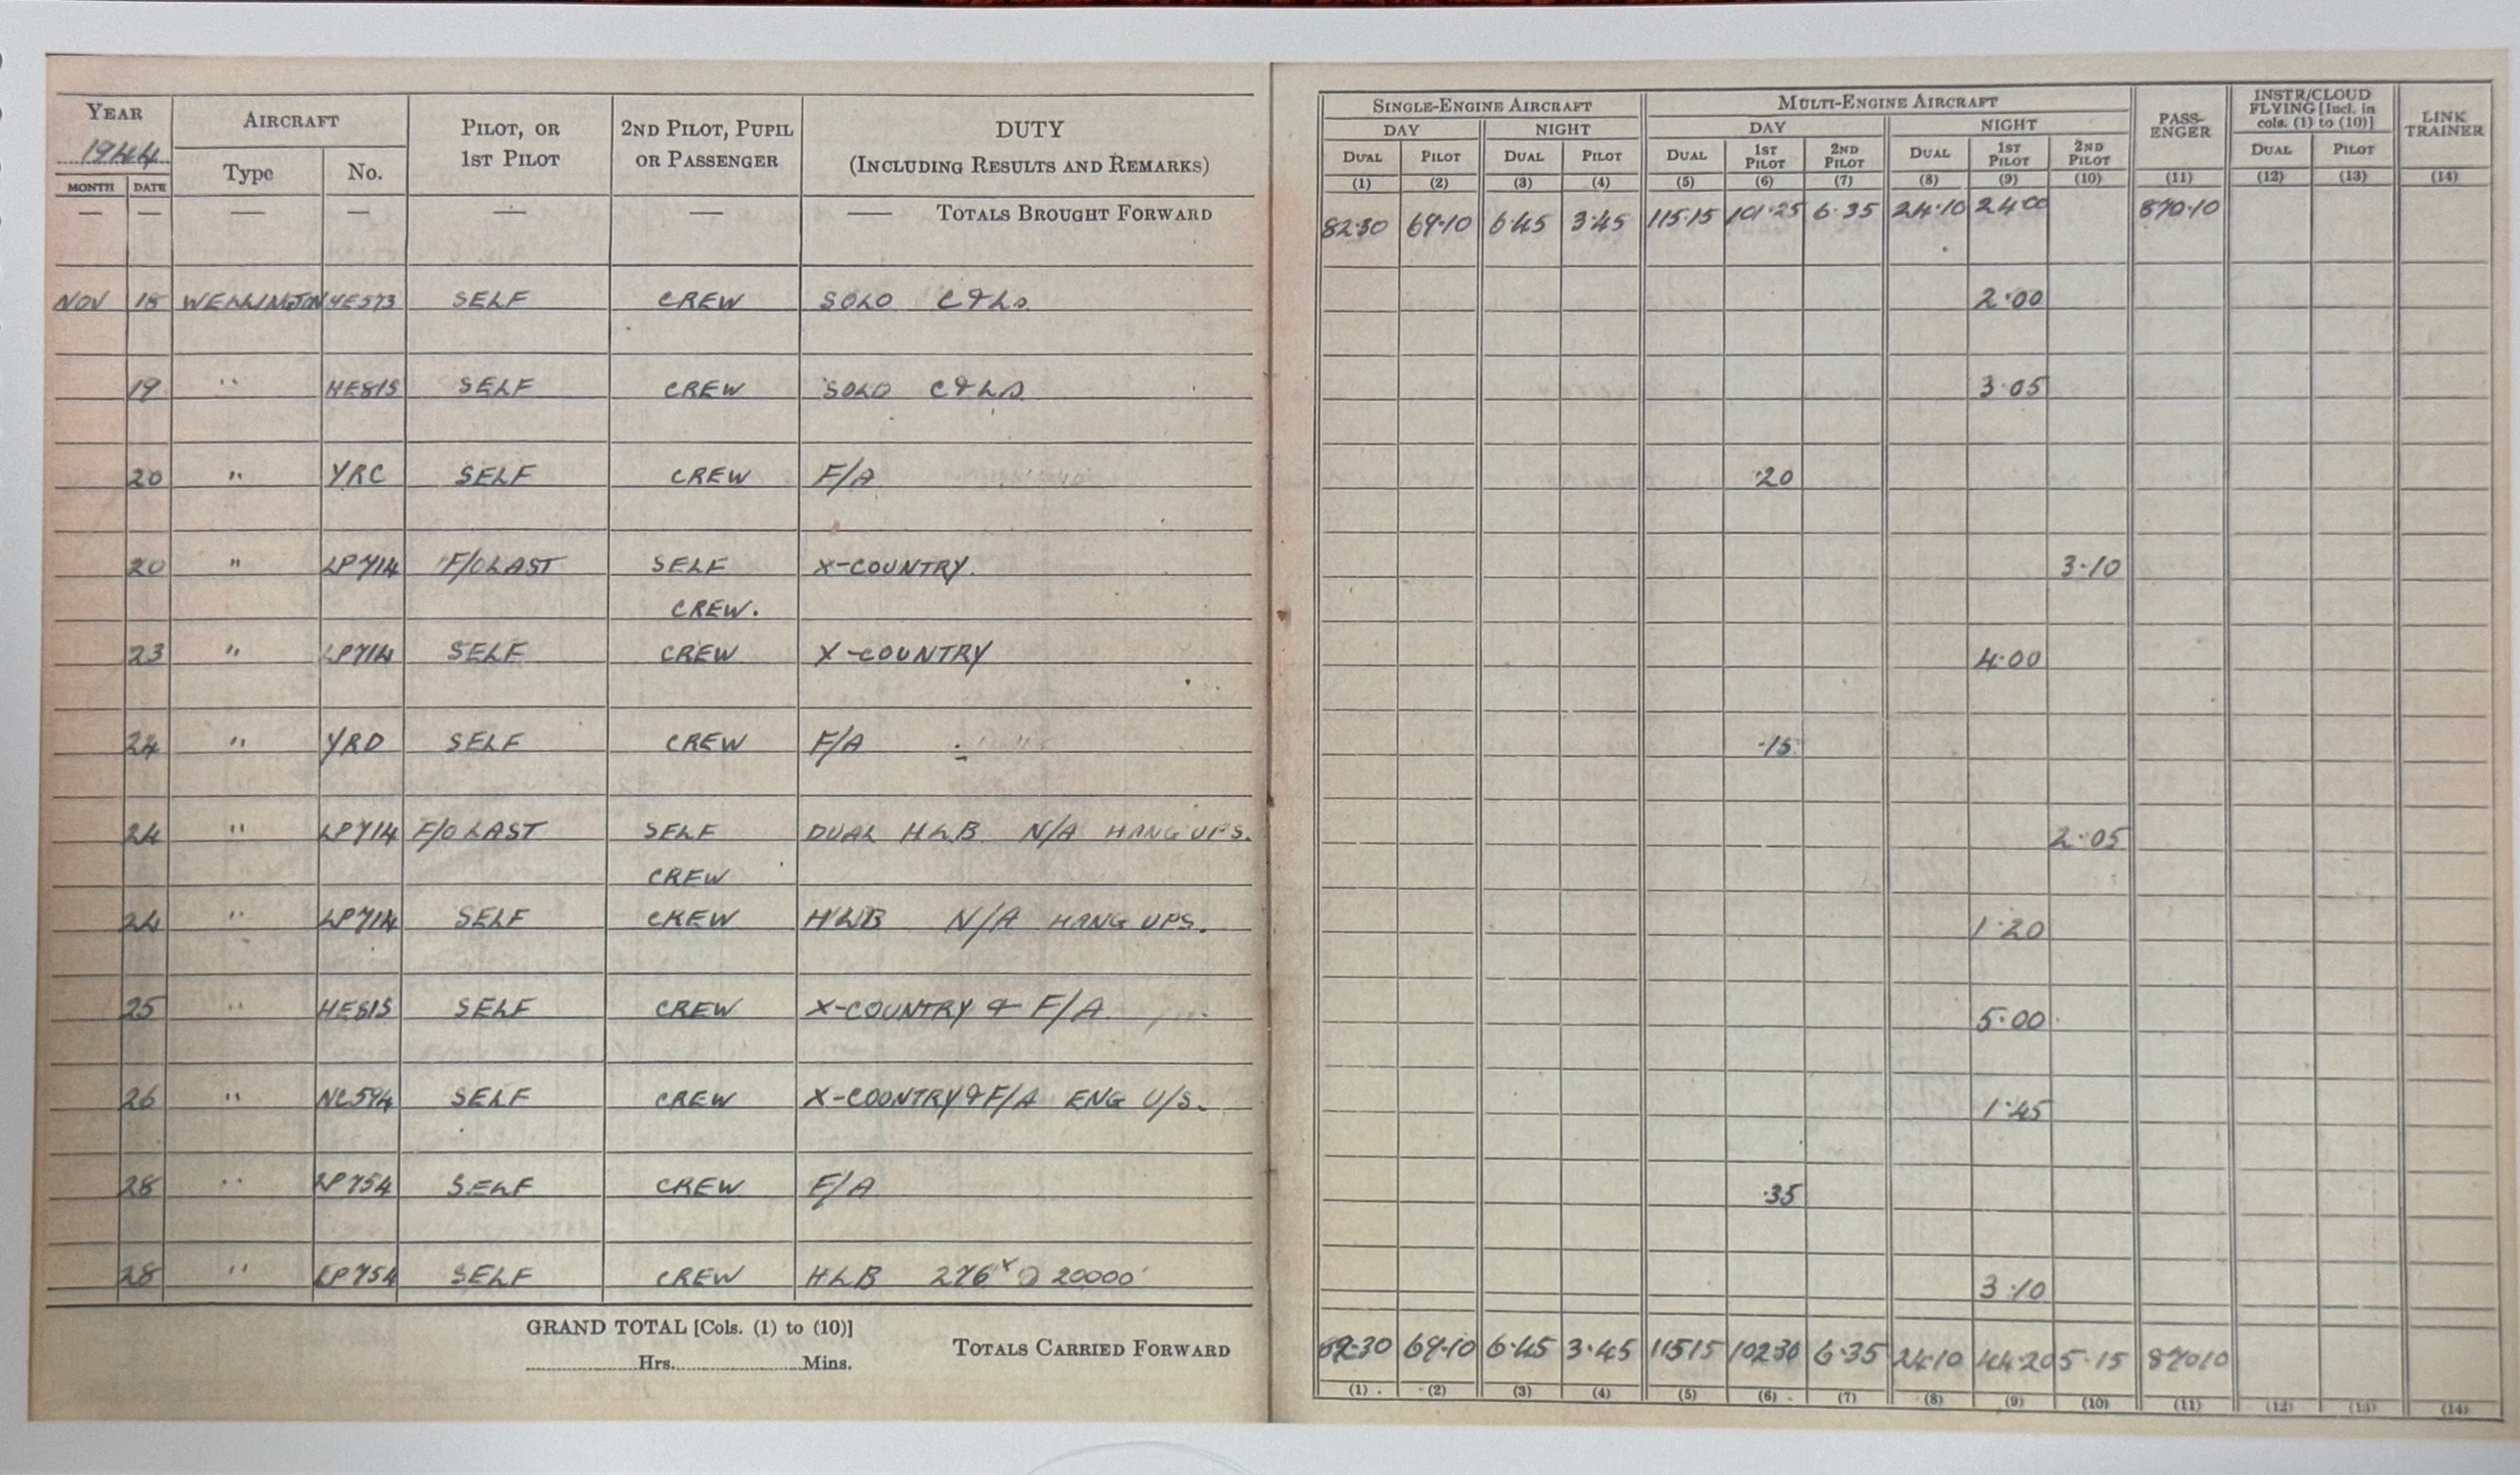 YEAR 1944 AIRCRAFT PILOT, OR 1ST PILOT 2ND PILOT, PUPIL OR PASSENGER DUTY (INCLUDING RESULTS AND REMARKS)
MONTH DATE Type No.
SINGLE-ENGINE AIRCRAFT MULTI-ENGINE AIRCRAFT PASS-ENGER INSTR/CLOUD FLYING [Incl. in cols. (1) to (10)] LINK TRAINER
DAY NIGHT DAY NIGHT
DUAL PILOT DUAL PILOT DUAL 1ST PILOT 2ND PILOT DUAL 1ST PILOT 2ND PILOT DUAL PILOT
(1) (2) (3) (4) (5) (6) (7) (8) (9) (10) (11) (12) (13) (14)
— — — — — — — TOTALS BROUGHT FORWARD 82·30 69·10 6·45 3·45 115·15 101·25 6·35 24·10 24·00 870·10
NOV 18 WELLINGTON SELF CREW SOLO C&Ls. 2·00
19 " HE815 SELF CREW SOLO C&Ls 3·05
20 " YRC SELF CREW F/A ·20
20 " LP714 F/O LAST SELF X-COUNTRY. 3·10
CREW.
23 " LP714 SELF CREW X-COUNTRY 4·00
24 " YRD SELF CREW F/A ·15
24 " LP714 F/O LAST SELF DUAL HLB N/A HANG UPS. 2·05
CREW
24 " LP714 SELF CREW HLB N/A HANG UPS. 1·20
25 " HE815 SELF CREW X-COUNTRY & F/A 5·00
26 " NC594 SELF CREW X-COUNTRY & F/A ENG U/S. 1·45
28 " LP754 SELF CREW F/A ·35
28 " LP754 SELF CREW HLB 276ˣ @ 20000' 3·10
GRAND TOTAL [Cols. (1) to (10)]
Hrs. Mins.
TOTALS CARRIED FORWARD 82·30 69·10 6·45 3·45 11515 10230 6·35 24·10 44·20 5·15 87010
(1) (2) (3) (4) (5) (6) (7) (8) (9) (10) (11) (12) (13) (14)